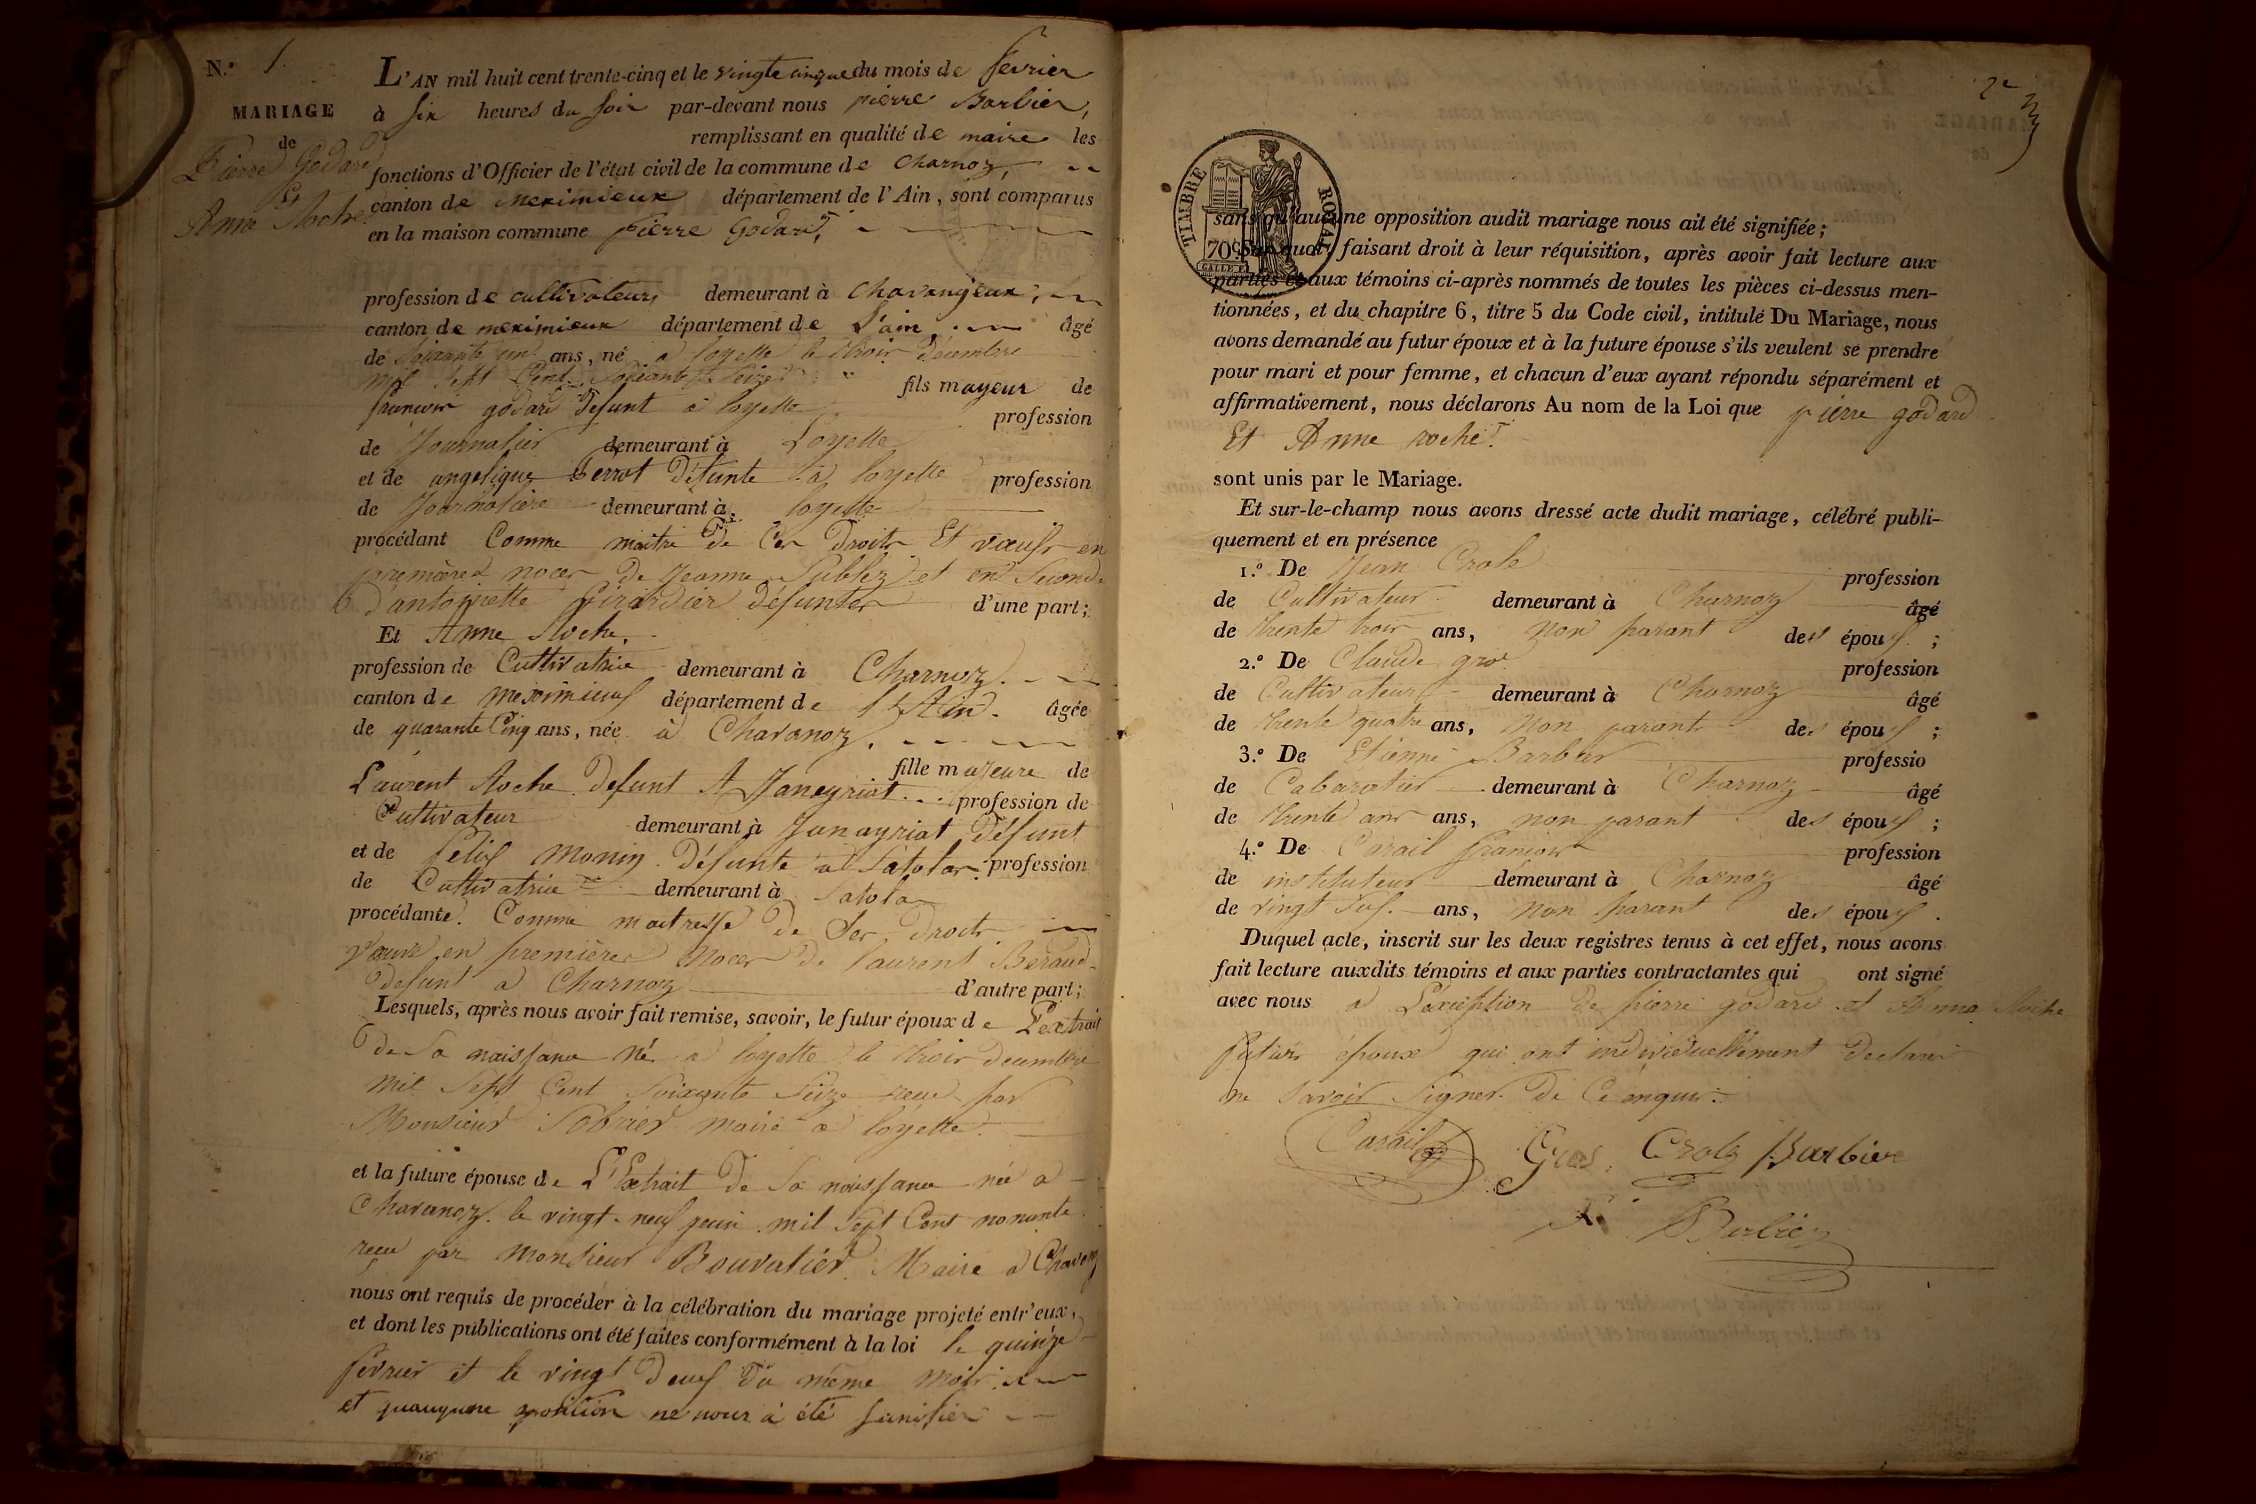 N.° 1.
MARIAGE
de
Pierre Godard
Et
Anne Roche
L'AN mil huit cent trente-cinq et le vingte cinque du mois de fevrier
à six heures du soir par-devant nous pierre Barbier,
remplissant en qualité de maire les
fonctions d'Officier de l'état civil de la commune de Charnoz,
canton de meximieux département de l'Ain, sont comparus
en la maison commune pierre Godard,
profession de cultivateur, demeurant à Chavanjeux,
canton de meximieux département de L'ain, âgé
de Soixante un ans, né a loyette le trois Décembre
mil sept Cent Soixante Seize fils mayeur de
francois godard Defunt a loyette profession
de Journalier demeurant à Loyette
et de angelique Perrot Défunte a loyette profession
de Journaliere demeurant à loyette
procédant Comme maitre De Ces Droits Et vœuf en
premières noces De Jeanne Sublez et en Seconde
D'antoinette Girardier Défuntes d'une part;
Et Anne Roche,
profession de Cultivatrice demeurant à Charnoz.
canton de meximieux département de L'Ain. âgée
de quarante Cinq ans, née à Chavanoz,
fille mayeure de
Laurent Roche Defunt A Janeyriat profession de
Cultivateur demeurant à Janayriat Défunt
et de Monin Défunte a Satolas profession
de Cultivatrice demeurant à Satola
procédante Comme maitresse De Ses Droits
Vœuve en premières Noces De laurent Beraud
Defunt a Charnoz d'autre part;
Lesquels, après nous avoir fait remise, savoir, le futur époux de L'extrait
De Sa naissance Né a loyette le trois decembre
mil Sept Cent Soixante Seize recu par
Monsieur Sobrier maire a loyette.
et la future épouse de L'Extrait De Sa naissance née a
Chavanoz le vingt neuf juin mil Sept Cent nonante
recu par Monsieur Bouvatier Maire a Chavanoz
nous ont requis de procéder à la célébration du mariage projeté entr'eux,
et dont les publications ont été faites conformément à la loi le quinze
fevrier et le vingt Deux Du même Mois
et quauqune oposition ne nous a été sinifiér
2e
TIMBRE ROYAL
70c
sans qu'aucune opposition audit mariage nous ait été signifiée;
Sur quoi, faisant droit à leur réquisition, après avoir fait lecture aux
parties et aux témoins ci-après nommés de toutes les pièces ci-dessus men-
tionnées, et du chapitre 6, titre 5 du Code civil, intitulé Du Mariage, nous
avons demandé au futur époux et à la future épouse s'ils veulent se prendre
pour mari et pour femme, et chacun d'eux ayant répondu séparément et
affirmativement, nous déclarons Au nom de la Loi que pierre godard
Et Anne roche
sont unis par le Mariage.
Et sur-le-champ nous avons dressé acte dudit mariage, célébré publi-
quement et en présence
1.° De Jean Crolz profession
de Cultivateur demeurant à Charnoz âgé
de trente trois ans, Non parant des époux ;
2.° De Claude gros profession
de Cultivateur demeurant à Charnoz âgé
de trente quatre ans, Non parant des époux ;
3.° De Etienne Barbier professio
de Cabaratier demeurant à Charnoz âgé
de trente ans ans, non parant des époux ;
4.° De Casail francois profession
de instituteur demeurant à Charnoz âgé
de vingt ans, Non parant des époux .
Duquel acte, inscrit sur les deux registres tenus à cet effet, nous avons
fait lecture auxdits témoins et aux parties contractantes qui ont signé
avec nous a L'exception De pierre godard et Anna Roche
futurs époux qui ont individuellement Declarer
ne savoir Signer De Ce
Casail Gros Crolz Barbier
Barbier